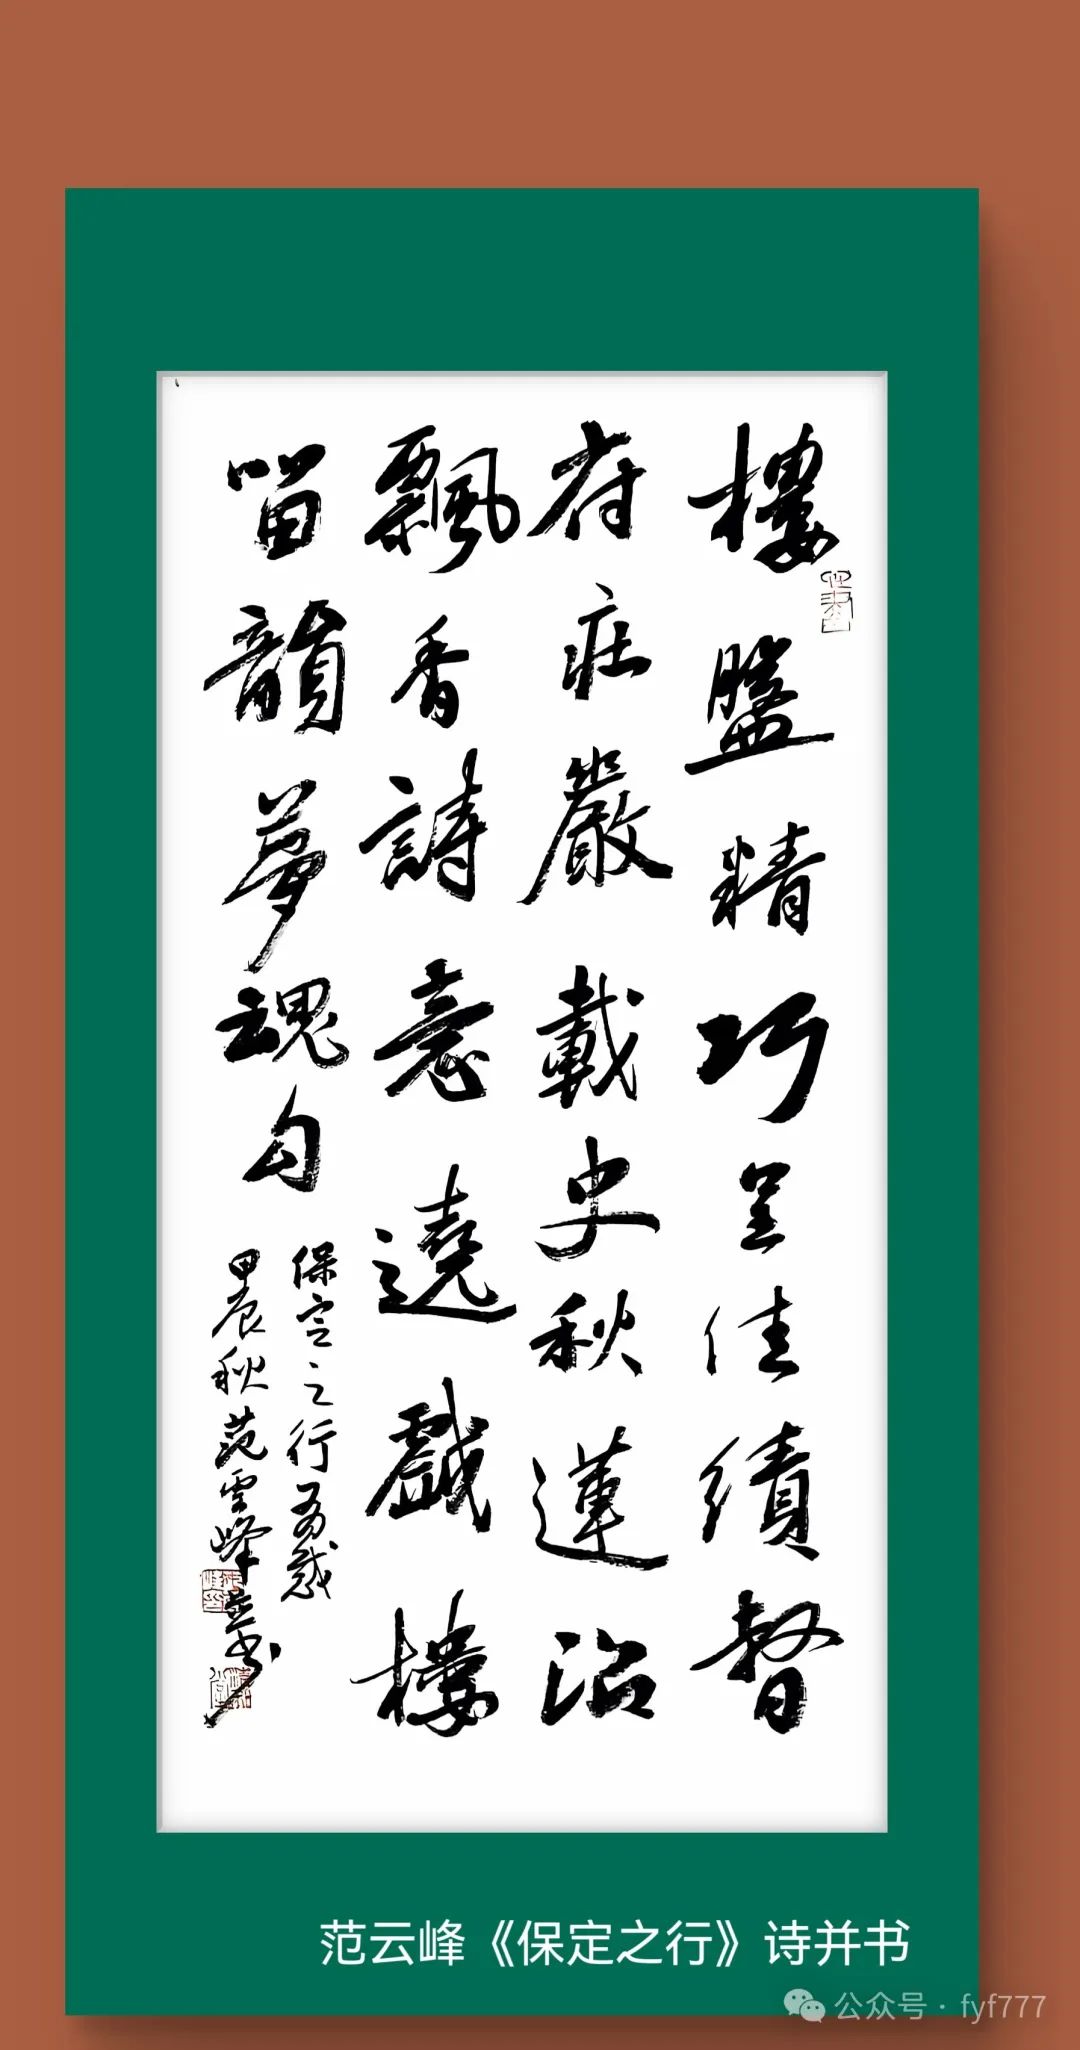 樓盤精巧呈佳績督
府莊嚴載史秋蓮沼
飄香詩意遶戲樓
留韻夢魂勾
保定之行有感
甲辰秋范雲峰並书
范云峰《保定之行》诗并书
公众号·fyf777